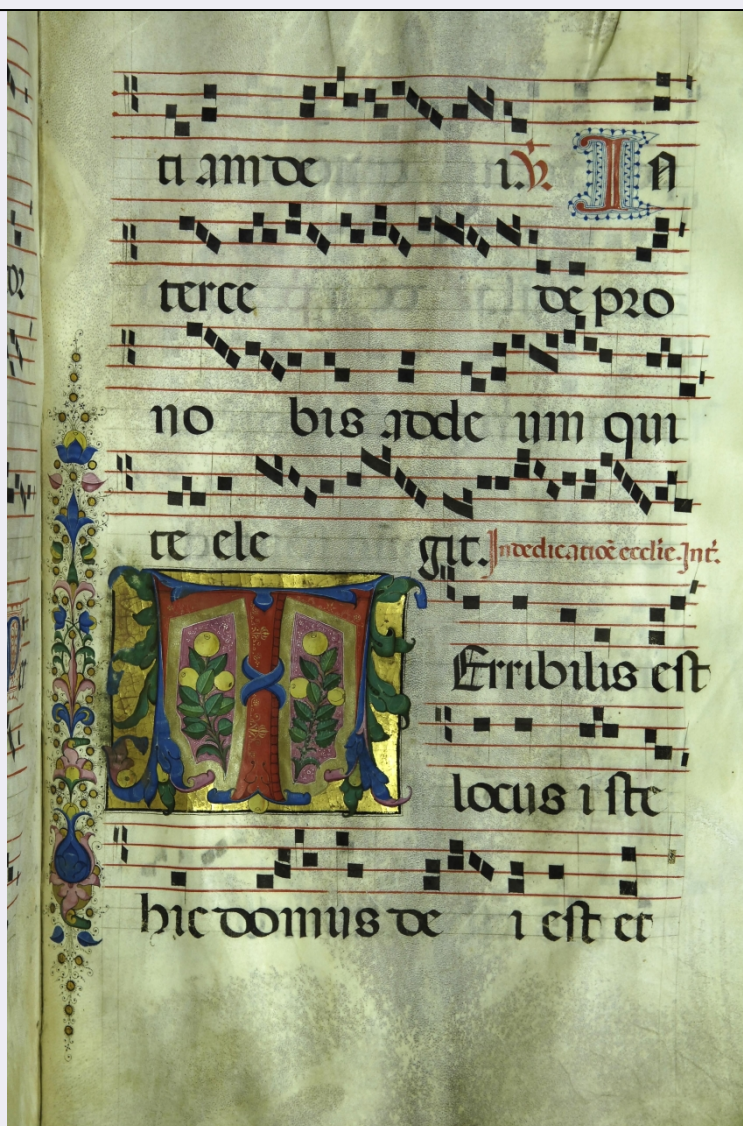 ti am de i. ℣. In
terce de pro
no bis ad de um qui
te ele git. In dedicatiōe ecclīe. Int̄.
TErribilis est
locus i ste
hic domus de i est et